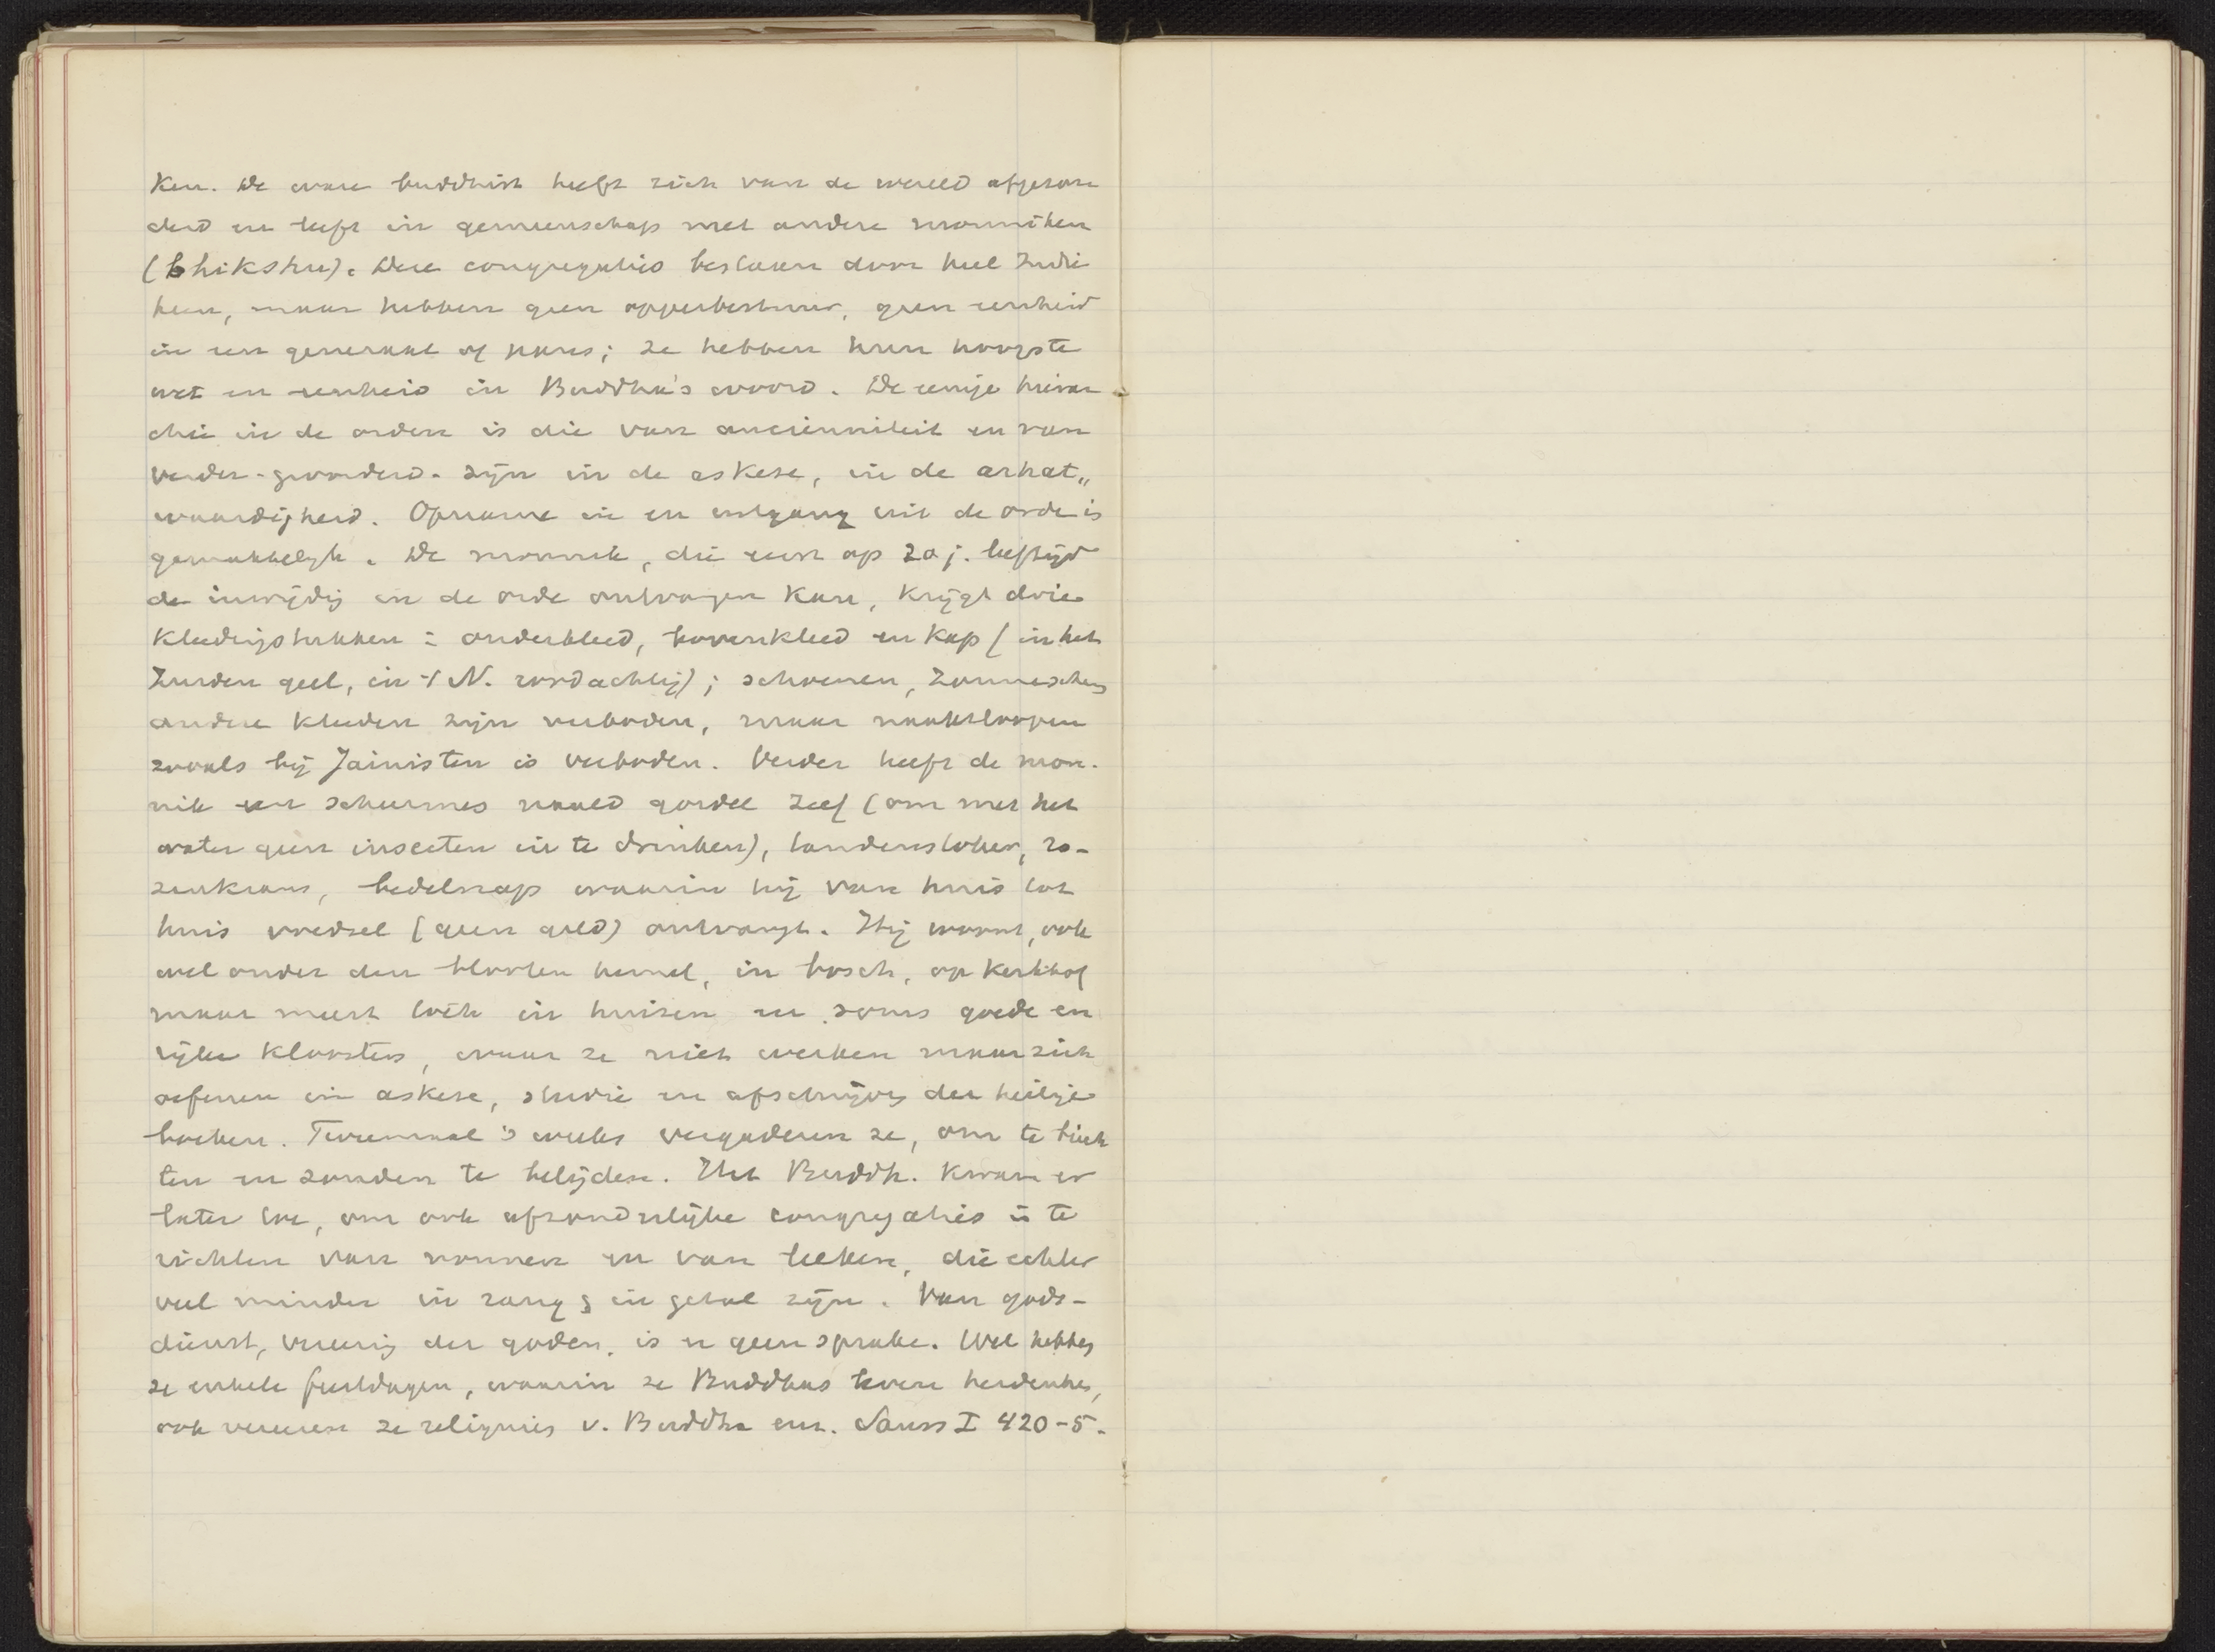 ken. De ware buddhist heeft zich van de wereld afgezon
derd en leeft in gemeenschap met andere monniken
(bhikshu). Deze congregaties bestaan door heel Indië
heen, maar hebben geen opperbestuur, geen eenheid
in een generaal of paus; ze hebben hun hoogste
wet en eenheid in Buddha's woord. De eenige hierar
chie in de orden is die van anciënniteit en van
verder-gevorderd-zijn in de askese, in de arhat„
waardigheid. Opname in en uitgang uit de orde is
gemakkelijk. De monnik, die eerst op 20 j. leeftijd
de inwijdig in de orde ontvangen kan, krijgt drie
kledingstukken: onderkleed, bovenkleed en kap (in het
Zuiden geel, in 't N. roodachtig); schoenen, zonnescherm
andere kleeden zijn verboden, maar naaktloopen
zooals bij Jainisten is verboden. Verder heeft de mon-
nik een scheermes naald gordel zeef (om met het
water geen insecten in te drinken), tandenstoker, ro-
zenkrans, bedelnap waarin hij van huis tot
huis voedsel (geen geld) ontvangt. Hij woont, ook
wel onder den blooten hemel, in bosch, op kerkhof
maar meest toch in huizen en soms goede en
rijke kloosters, waar ze niet werken maar zich
oefenen in askese, studie en afschrijving der heilige
boeken. Tweemaal 's weeks vergaderen ze, om te biech
ten en zonden te belijden. Het Buddh. kwam er
later toe, om ook afzonderlijke congregaties in te
richten van nonnen en van leeken, die echter
veel minder in rang & in getal zijn. Van gods-
dienst, vereerig der goden, is er geen sprake. Wel hebben
ze enkele feestdagen, waarin ze Buddhas leven herdenken,
ook vereeren ze reliquies v. Buddha enz. Sauss I 420-5.